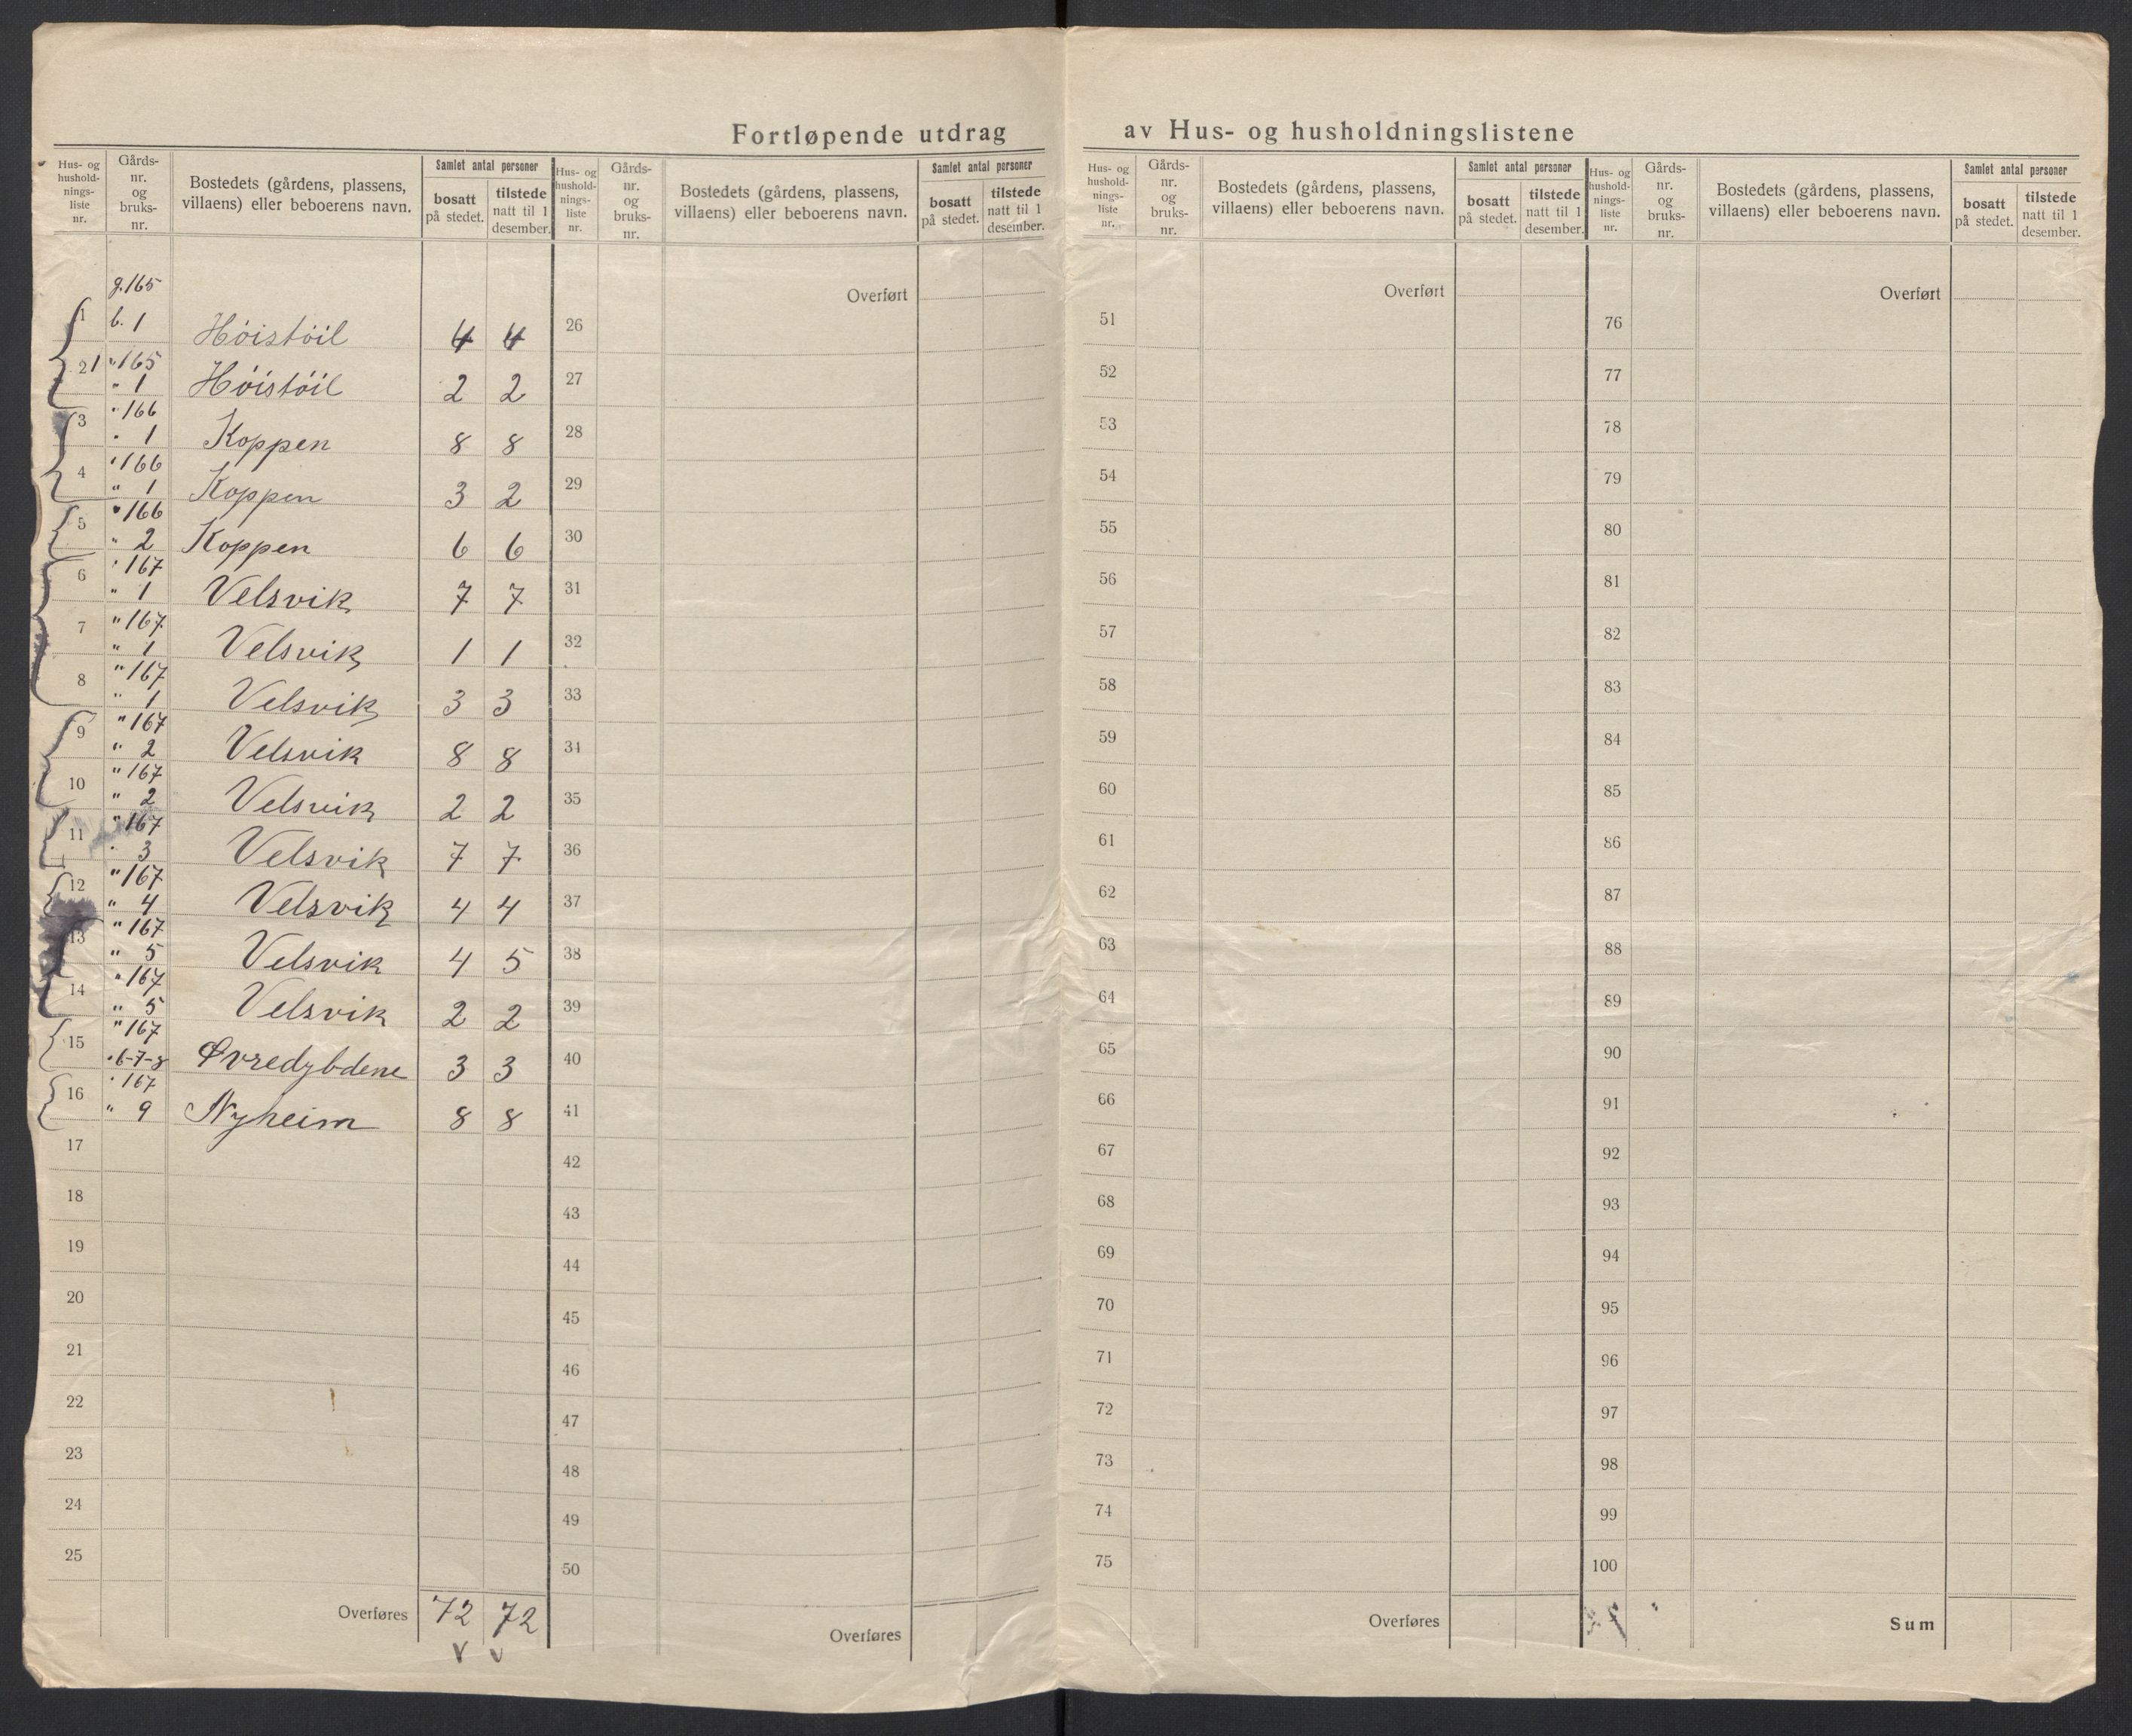 Fortløpende utdrag av Hus- og husholdningslistene
Hus- og hushold-nings-liste nr. | Gårds-nr. og bruks-nr. | Bostedets (gårdens, plassens, villaens) eller beboerens navn. | Samlet antal personer | bosatt på stedet. | tilstede natt til 1 desember.
g. 165
1 | b. 1 | Höistöil | 4 | 4
2 1 | " 165 " 1 | Höistöil | 2 | 2
3 | " 166 " 1 | Koppen | 8 | 8
4 | " 166 " 1 | Koppen | 3 | 2
5 | " 166 " 2 | Koppen | 6 | 6
6 | " 167 " 1 | Velsvik | 7 | 7
7 | " 167 " 1 | Velsvik | 1 | 1
8 | " 167 " 1 | Velsvik | 3 | 3
9 | " 167 " 2 | Velsvik | 8 | 8
10 | " 167 " 2 | Velsvik | 2 | 2
11 | " 167 " 3 | Velsvik | 7 | 7
12 | " 167 " 4 | Velsvik | 4 | 4
13 | " 167 " 5 | Velsvik | 4 | 5
14 | " 167 " 5 | Velsvik | 2 | 2
15 | " 167 " 6-7-8 | Øvredybdene | 3 | 3
16 | " 167 " 9 | Nyheim | 8 | 8
17
18
19
20
21
22
23
24
25
Overføres | 72 | 72
v v
Hus- og hushold-nings-liste nr. | Gårds-nr. og bruks-nr. | Bostedets (gårdens, plassens, villaens) eller beboerens navn. | Samlet antal personer | bosatt på stedet. | tilstede natt til 1 desember.
Overført
26
27
28
29
30
31
32
33
34
35
36
37
38
39
40
41
42
43
44
45
46
47
48
49
50
Overføres
Hus- og hushold-nings-liste nr. | Gårds-nr. og bruks-nr. | Bostedets (gårdens, plassens, villaens) eller beboerens navn. | Samlet antal personer | bosatt på stedet. | tilstede natt til 1 desember.
Overført
51
52
53
54
55
56
57
58
59
60
61
62
63
64
65
66
67
68
69
70
71
72
73
74
75
Overføres
Hus- og hushold-nings-liste nr. | Gårds-nr. og bruks-nr. | Bostedets (gårdens, plassens, villaens) eller beboerens navn. | Samlet antal personer | bosatt på stedet. | tilstede natt til 1 desember.
Overført
76
77
78
79
80
81
82
83
84
85
86
87
88
89
90
91
92
93
94
95
96
97
98
99
100
Sum